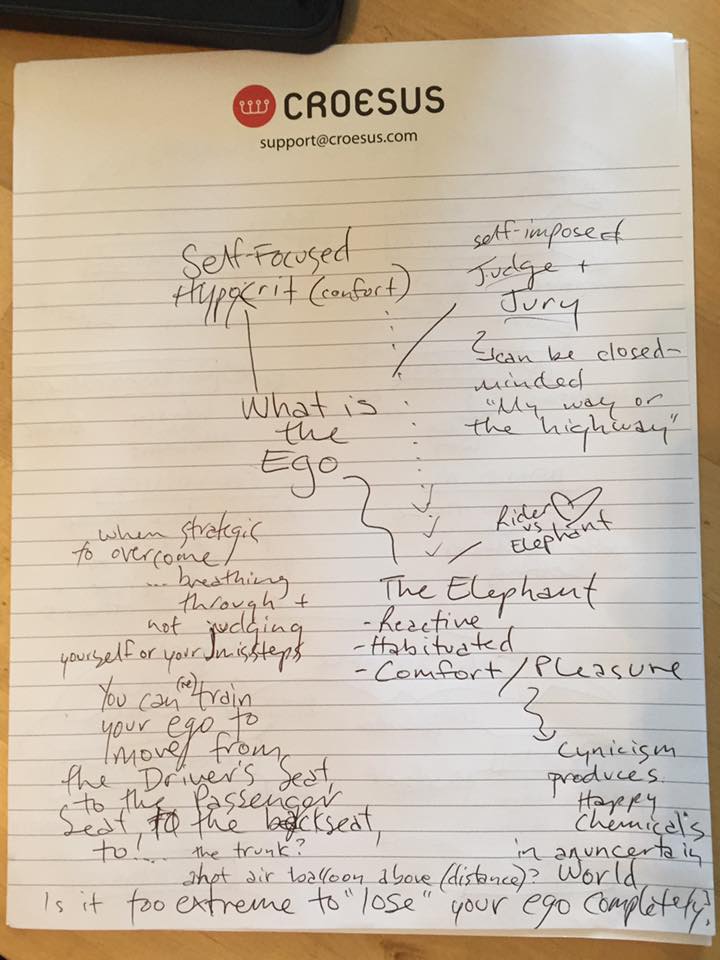 CROESUS
support@croesus.com
Self-Focused
Hypocrit (confort)
self-imposed
Judge +
Jury
can be closed-
minded
"My way or
the highway"
What is
the
Ego
Rider
vs
Elephant
The Elephant
- Reactive
- Habituated
- Comfort / Pleasure
Cynicism
produces
Happy
Chemicals
in an uncertain
World
when strategic
to overcome
... breathing
through +
not judging
yourself or your missteps
You can (re)train
your ego to
move from
the Driver's Seat,
to the Passenger
Seat, to the backseat,
to!... the trunk?
a hot air balloon above (distance)?
Is it too extreme to "lose" your ego completely?